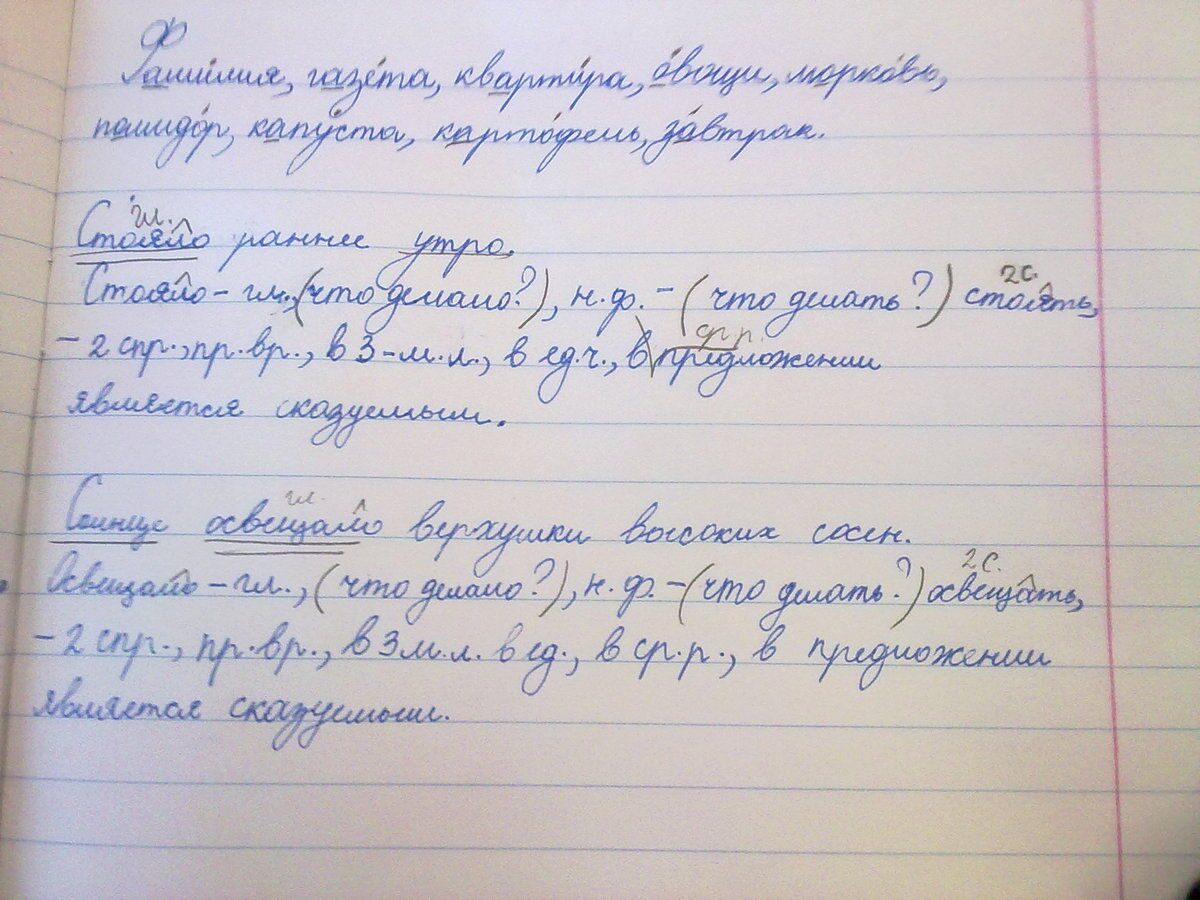 Ф
Фамилия, газе́та, кварти́ра, о́вощи, морко́вь,
помидо́р, капу́ста, карто́фель, за́втрак.
гл.
Стояло раннее утро.
2с.
Стояло – гл., (что делало?), н.ф. – (что делать?) стоять,
ср.р.
– 2 спр., пр.вр., в 3-м.л., в ед.ч., в предложении
является сказуемым.
гл.
Солнце освещало верхушки высоких сосен.
2с.
Освещало – гл., (что делало?), н.ф. – (что делать?) освещать,
– 2 спр., пр.вр., в 3м.л. в ед., в ср.р., в предложении
является сказуемым.